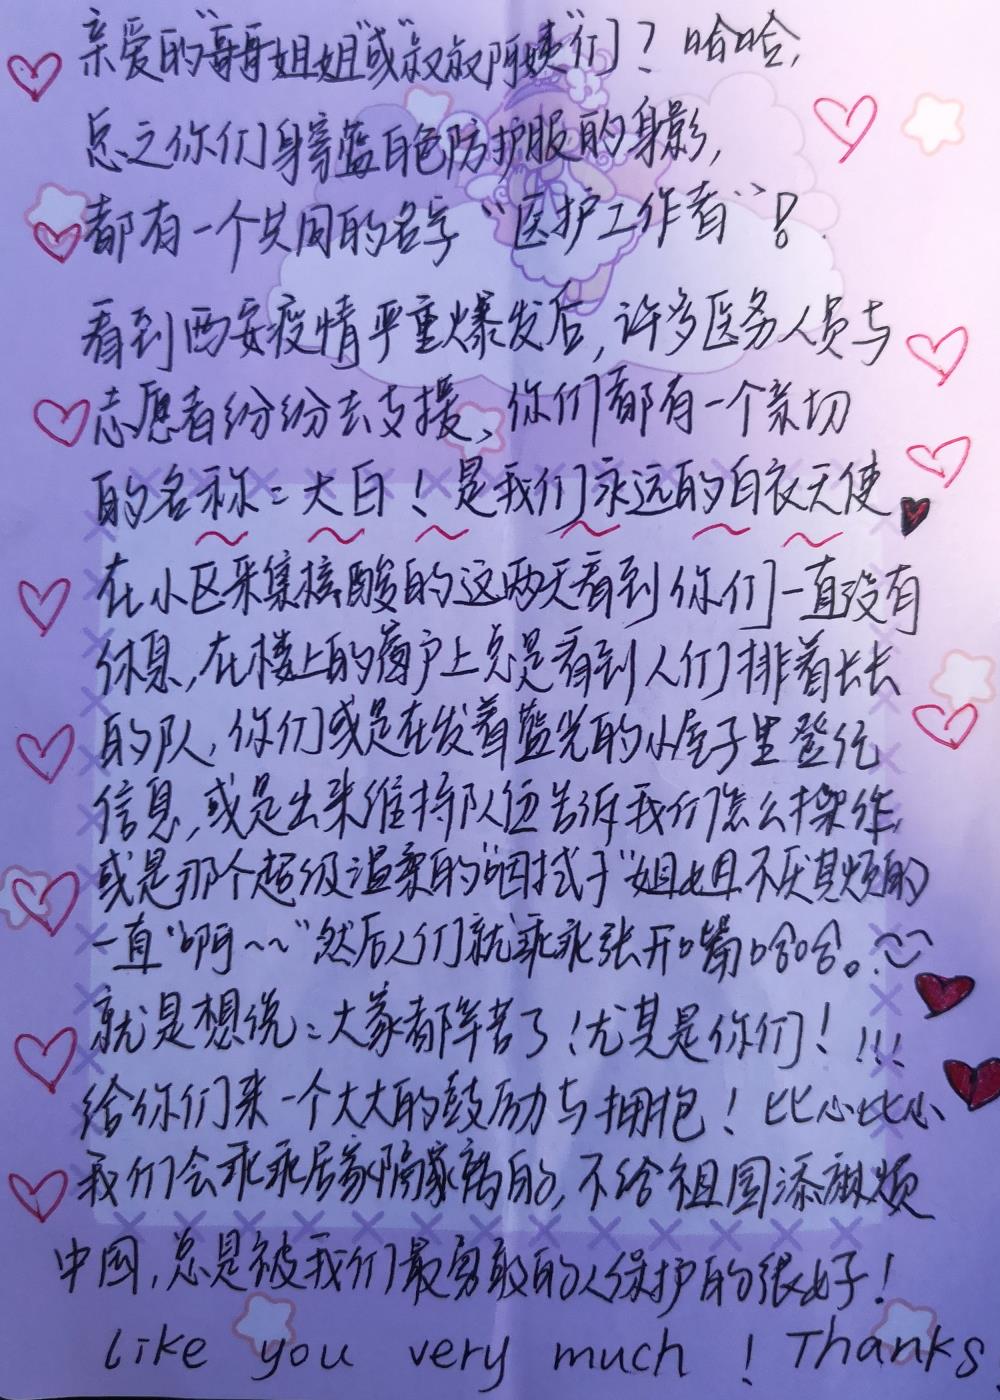 亲爱的"哥哥姐姐"或"叔叔阿姨"们？哈哈，
总之你们身穿蓝白色防护服的身影，
都有一个共同的名字"医护工作者"！
看到西安疫情严重爆发后，许多医务人员与
志愿者纷纷去支援，你们都有一个亲切
的名称：大白！是我们永远的白衣天使
在小区采集核酸的这两天看到你们一直没有
休息，在楼上的窗户上总是看到人们排着长长
的队，你们或是在发着蓝光的小屋子里登记
信息，或是出来维持队伍告诉我们怎么操作
或是那个超级温柔的"咽拭子"姐姐不厌其烦的
一直"啊~~"然后人们就乖乖张开嘴哈哈。
就是想说：大家都辛苦了！尤其是你们！!!!
给你们来一个大大的鼓励与拥抱！比心比心
我们会乖乖居家隔离的，不给祖国添麻烦
中国，总是被我们最勇敢的人保护的很好！
like you very much ! Thanks